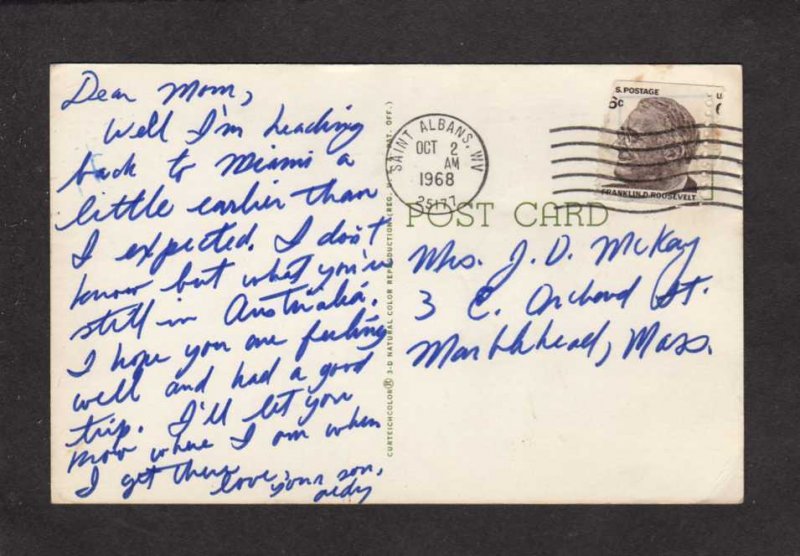 Dear Mom,
Well I'm heading
back to Miami a
little earlier than
I expected. I don't
know but what you're
still in Australia.
I hope you are feeling
well and had a good
trip. I'll let you
know where I am when
I get there
love,
your son,
CURTEICHCOLOR® 3-D NATURAL COLOR REPRODUCTION (REG. U.S. PAT. OFF.)
SAINT ALBANS, WV
OCT 2
AM
1968
25177
U.S. POSTAGE
6c
FRANKLIN D. ROOSEVELT
POST CARD
Mrs. J. D. McKay
3 E. Orchard St.
Marblehead, Mass.